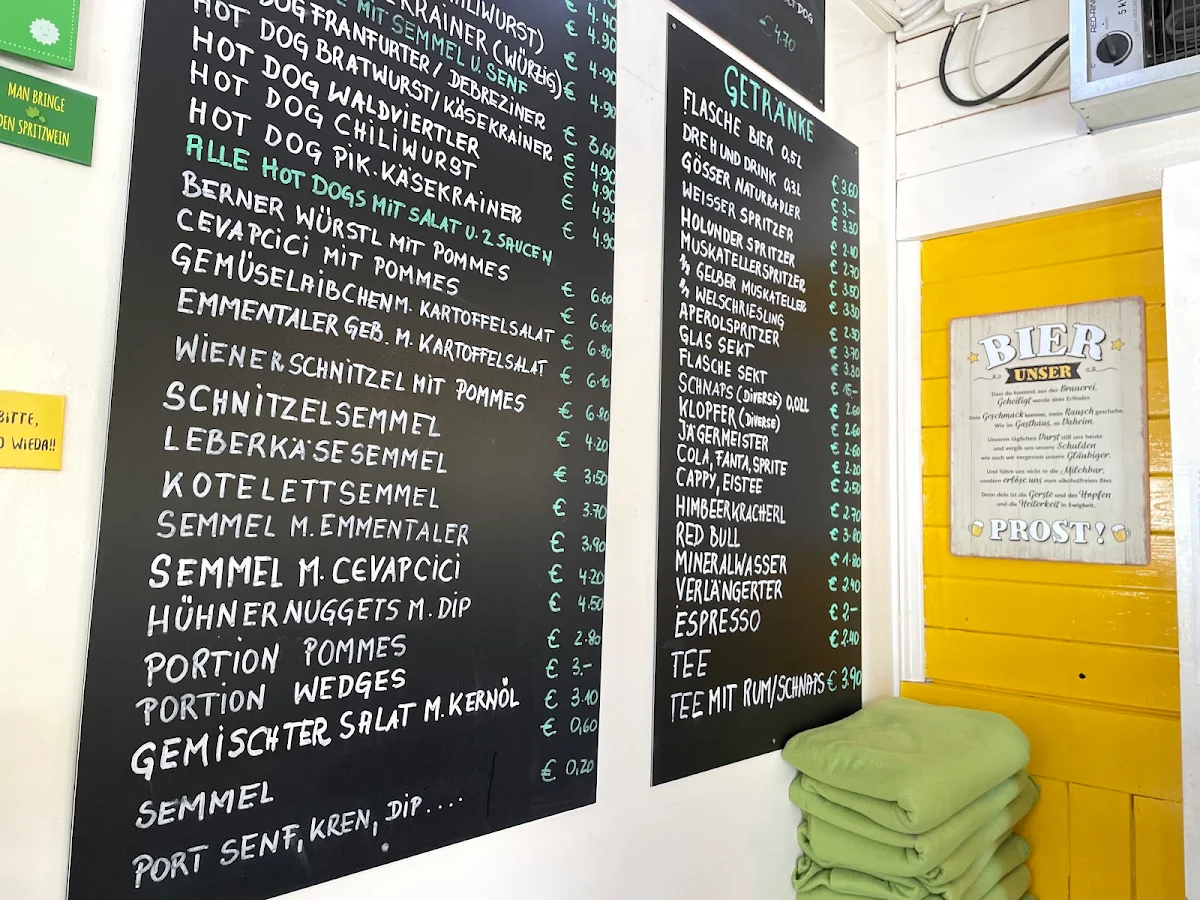 MAN BRINGE
DEN SPRITZWEIN
BITTE,
WIEDA!!
€ 4.40
CHILIWURST) € 4.90
KRAINER (WÜRZIG) € 4.90
MIT SEMMEL U. SENF
HOT DOG FRANKFURTER / DEBREZINER € 3.60
HOT DOG BRATWURST/KÄSEKRAINER € 4.90
HOT DOG WALDVIERTLER € 4.90
HOT DOG CHILIWURST € 4.90
HOT DOG PIK. KÄSEKRAINER € 4.90
ALLE HOT DOGS MIT SALAT U. 2 SAUCEN
BERNER WÜRSTL MIT POMMES € 6.60
CEVAPCICI MIT POMMES € 6.60
GEMÜSELAIBCHEN M. KARTOFFELSALAT € 6.80
EMMENTALER GEB. M. KARTOFFELSALAT € 6.10
WIENERSCHNITZEL MIT POMMES € 6.80
SCHNITZELSEMMEL € 4.20
LEBERKÄSESEMMEL € 3.50
KOTELETTSEMMEL € 3.70
SEMMEL M. EMMENTALER € 3.90
SEMMEL M. CEVAPCICI € 4.20
HÜHNERNUGGETS M. DIP € 4.50
PORTION POMMES € 2.80
PORTION WEDGES € 3.-
GEMISCHTER SALAT M. KERNÖL € 3.10
SEMMEL € 0,60
PORT SENF, KREN, DIP.... € 0,20
€ 4.70
GETRÄNKE
FLASCHE BIER 0,5L € 3.60
DREH UND DRINK 0,3L € 3.-
GÖSSER NATURRADLER € 3.30
WEISSER SPRITZER € 2.40
HOLUNDER SPRITZER € 2.70
MUSKATELLERSPRITZER € 3.50
⅛ GELBER MUSKATELLER € 3.30
⅛ WELSCHRIESLING € 2.50
APEROLSPRITZER € 3.70
GLAS SEKT € 3.80
FLASCHE SEKT € 15,-
SCHNAPS (DIVERSE) 0,02L € 2.60
KLOPFER (DIVERSE) € 2.60
JÄGERMEISTER € 2.60
COLA, FANTA, SPRITE € 2.20
CAPPY, EISTEE € 2.50
HIMBEERKRACHERL € 2.70
RED BULL € 3.80
MINERALWASSER € 1.80
VERLÄNGERTER € 2.40
ESPRESSO € 2,-
TEE € 2.40
TEE MIT RUM/SCHNAPS € 3.90
BIER
UNSER
Das du kommst aus der Brauerei.
Geheiligt werde dein Erfinder.
Dein Geschmack komme, mein Rausch geschehe.
Wie im Gasthaus, so Daheim.
Unseren täglichen Durst still uns heute
und vergib uns unsere Schulden
wie auch wir vergessen unsere Gläubiger.
Und führe uns nicht in die Milchbar,
sondern erlöse uns vom alkoholfreien Bier.
Denn dein ist die Gerste und der Hopfen
und die Heiterkeit in Ewigkeit.
PROST!